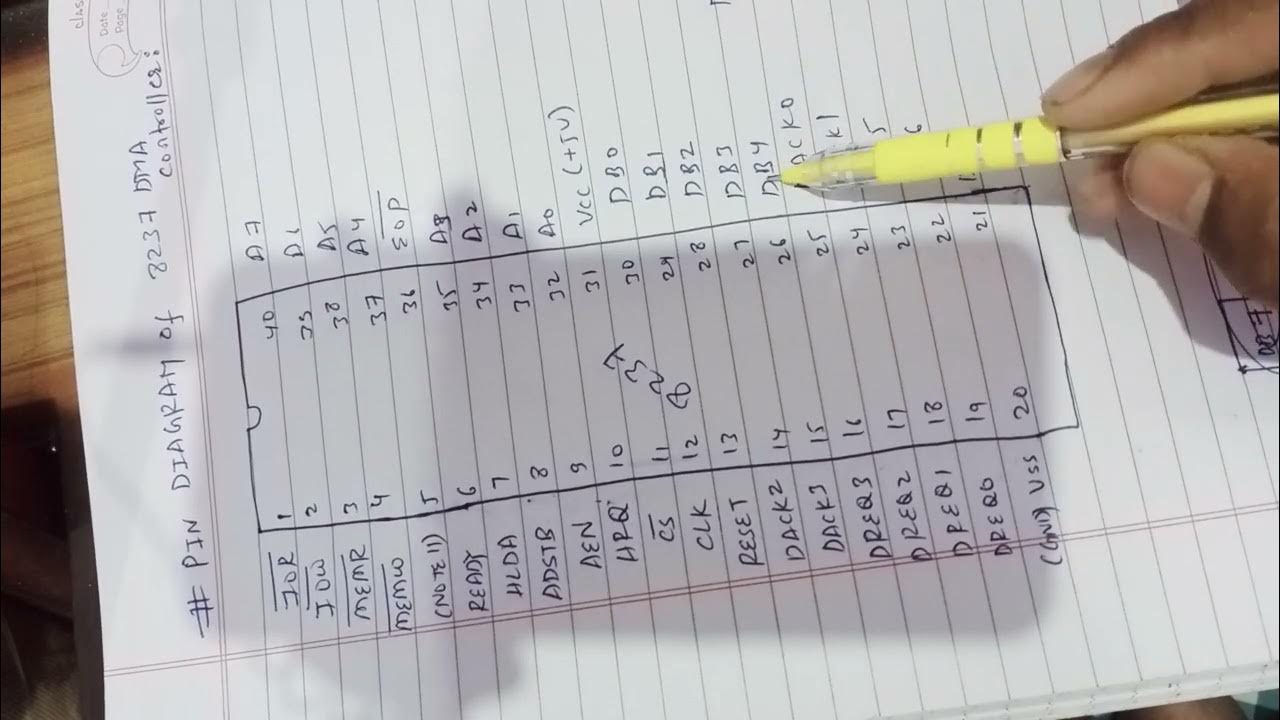 CLAS
Date
Page
# PIN DIAGRAM of 8237 DMA
controller:
IOR 1 40 A7
IOW 2 39 A6
MEMR 3 38 A5
MEMW 4 37 A4
(NOTE 11) 5 36 EOP
READY 6 35 A3
HLDA 7 34 A2
ADSTB 8 33 A1
AEN 9 32 A0
HRQ 10 31 VCC (+5V)
CS 11 30 DB0
CLK 12 29 DB1
RESET 13 28 DB2
DACK2 14 27 DB3
DACK3 15 26 DB4
DREQ3 16 25 ACK0
DREQ2 17 24 K1
DREQ1 18 23 5
DREQ0 19 22 6
(GND) VSS 20 21
8237
DB7